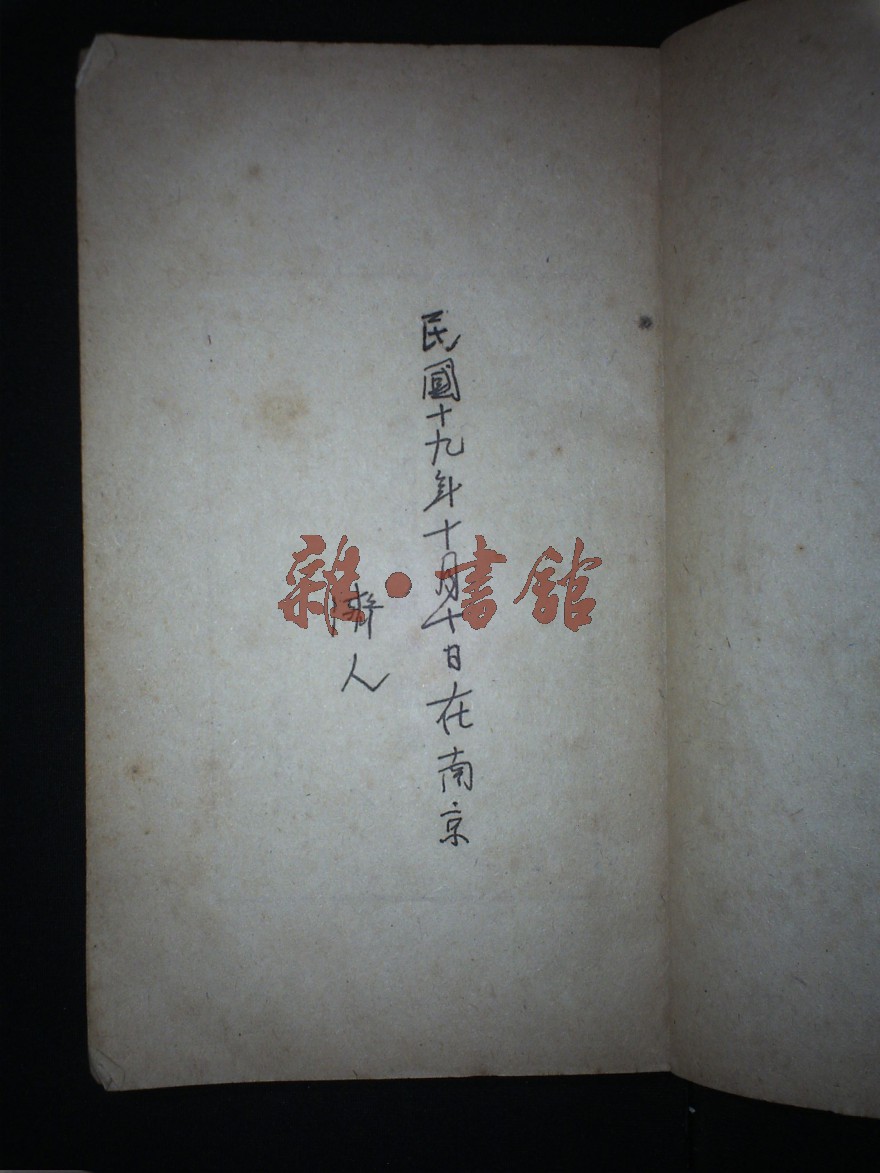 民國十九年十月十日在南京
濟人
雜·書館